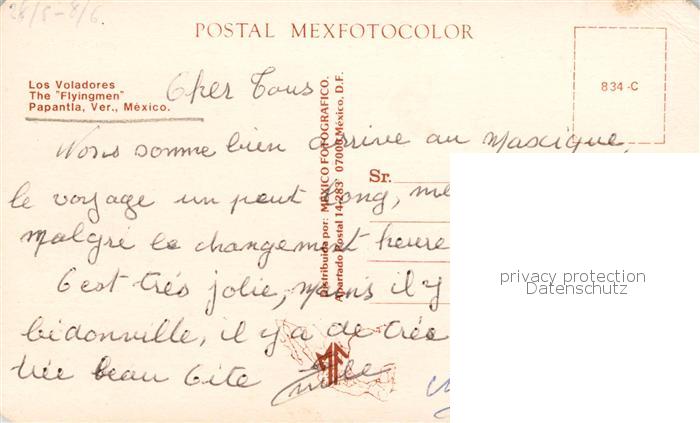 28/5-8/6
POSTAL MEXFOTOCOLOR
834-C
Los Voladores
The "Flyingmen"
Papantla, Ver., México.
Cher Tous
Nous somme bien arrive au Maxique,
le voyage un peut long, me
malgré le changement heure
C'est très jolie, mains il y
bidonville, il y a de trée
trée beau Cite
Distribuida por: MEXICO FOTOGRAFICO.
Apartado Postal 14-283 07000 México, D.F.
Sr.
privacy protection
Datenschutz